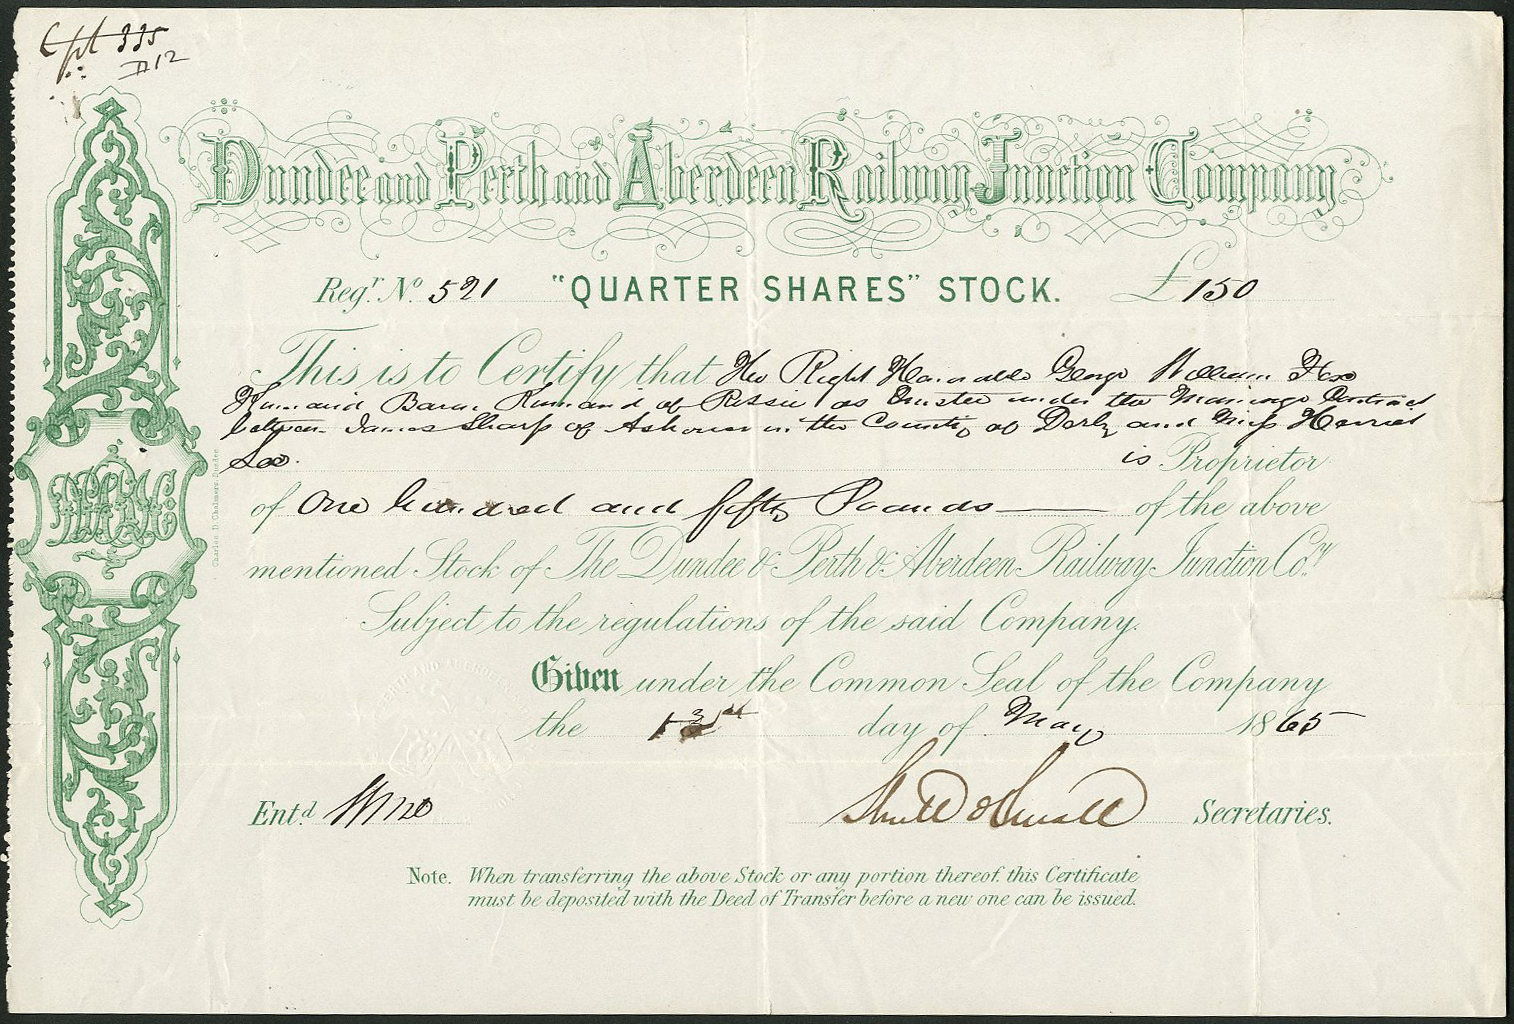 Cft 335
D12
Dundee and Perth and Aberdeen Railway Junction Company
Regr. No. 521 "QUARTER SHARES" STOCK. £150
This is to Certify that The Right Honorable George William Fox
Kinnaird Baron Kinnaird of Rossie as Trustee under the Marriage Contract
between James Sharp of in the County of Derby and Miss Harriet
is Proprietor
of One hundred and fifty Pounds of the above
mentioned Stock of The Dundee & Perth & Aberdeen Railway Junction Coy.
Subject to the regulations of the said Company.
Given under the Common Seal of the Company
the day of May 1865
Entd. Secretaries.
Note. When transferring the above Stock or any portion thereof, this Certificate
must be deposited with the Deed of Transfer before a new one can be issued.
Charles D. Chalmers, Dundee
PERTH AND ABERDEEN